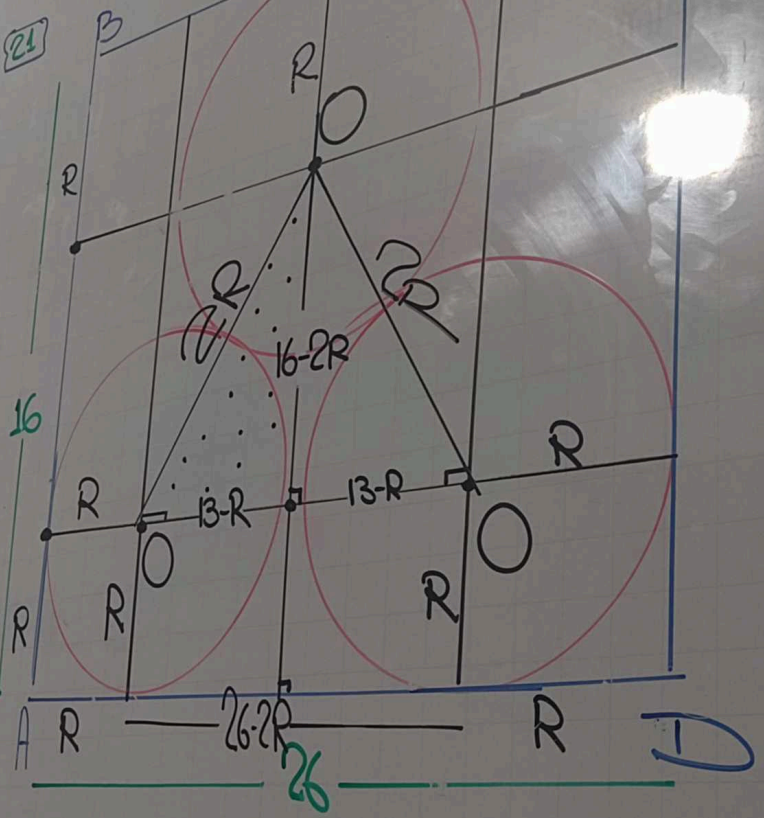 21
B
R
O
R
2R
2R
16-2R
16
R
13-R
13-R
R
O
O
R
R
R
A
R
26-2R
R
D
26